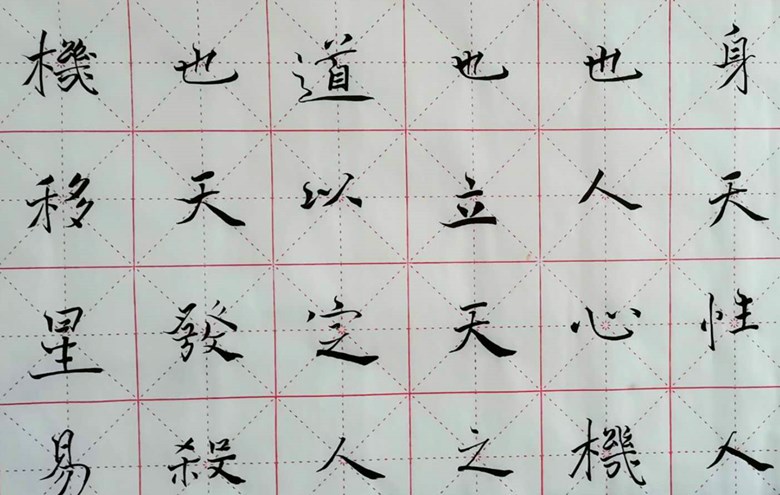 身天性人
也人心機
也立天之
道以定人
也天發殺
機移星易